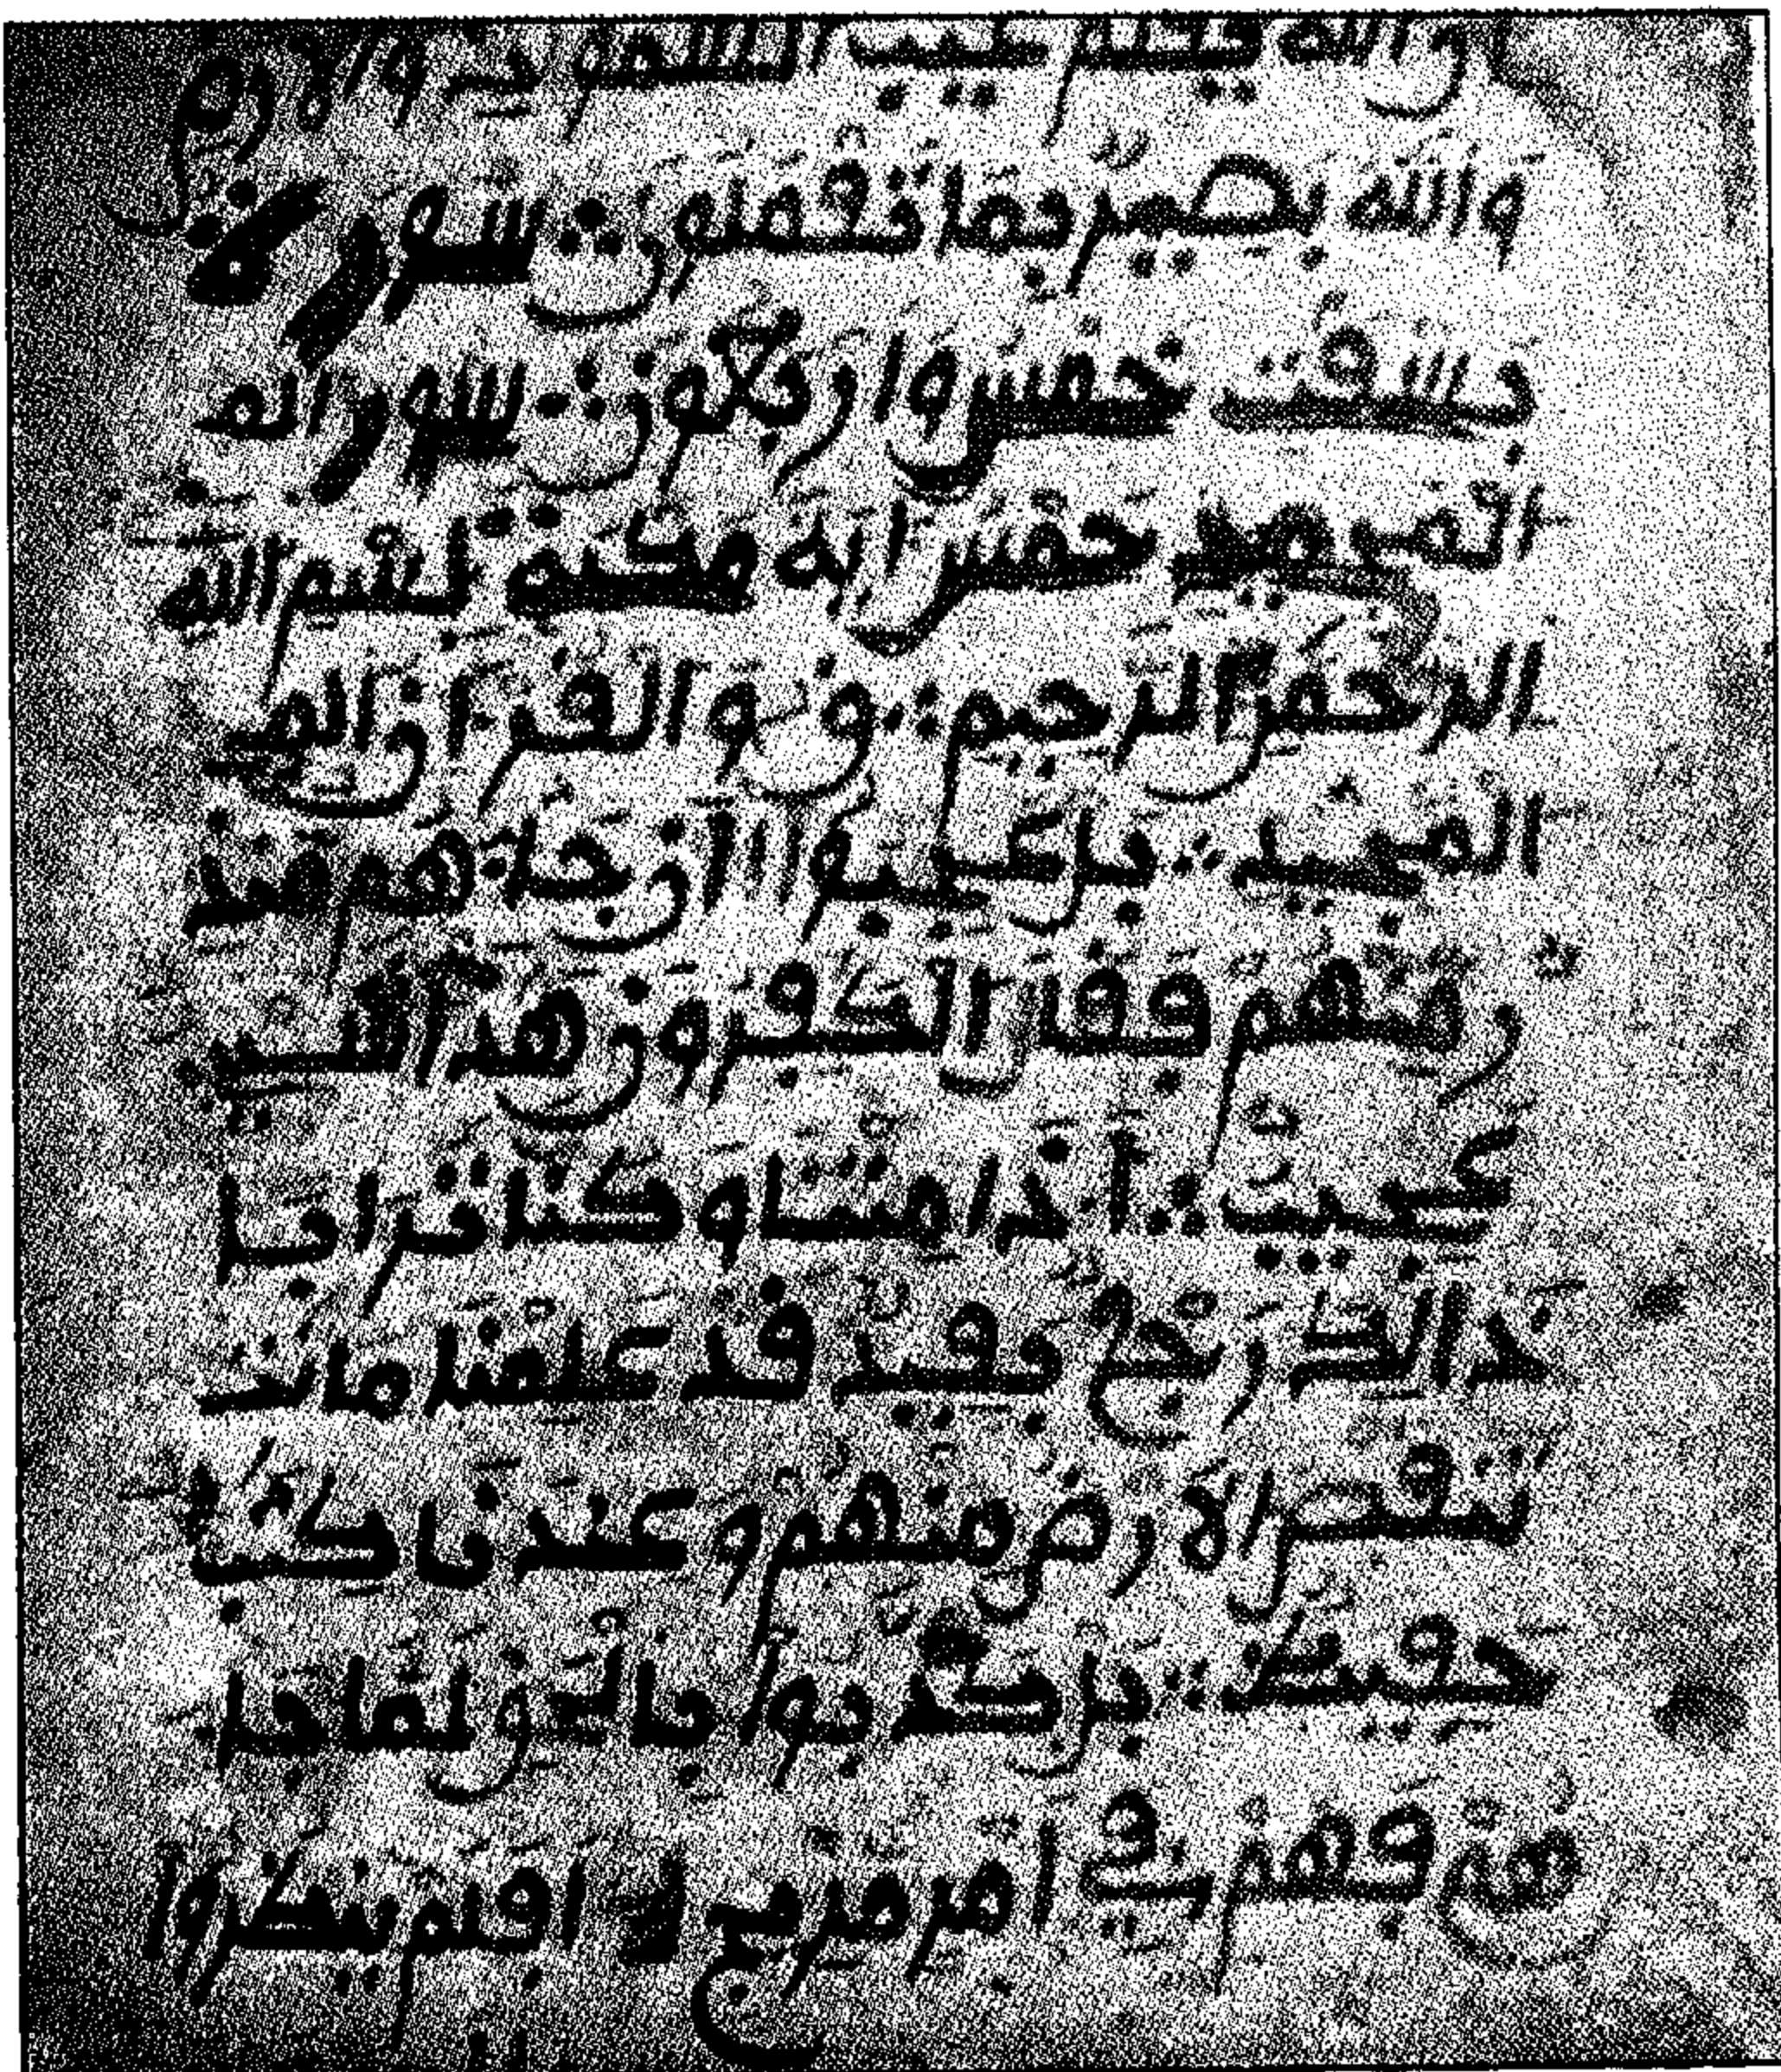 ان الله يعلم غيب السموت والارض
والله بصير بما تعملون سورة
بسقت خمس واربعون
خمس اية مكية بسم الله
الرحمن الرحيم ق والقران الم
المجيد بل عجبوا ان جاهم منذ
ر منهم فقال الكفرون هذا شي
عجيب اذا متنا وكنا ترابا
ذالك رجع بعيد قد علمنا ما تن
تنقص الارض منهم وعندنا كتب
حفيظ بل كذبوا بالحق لما جا
هم فهم في امر مريج افلم ينظروا